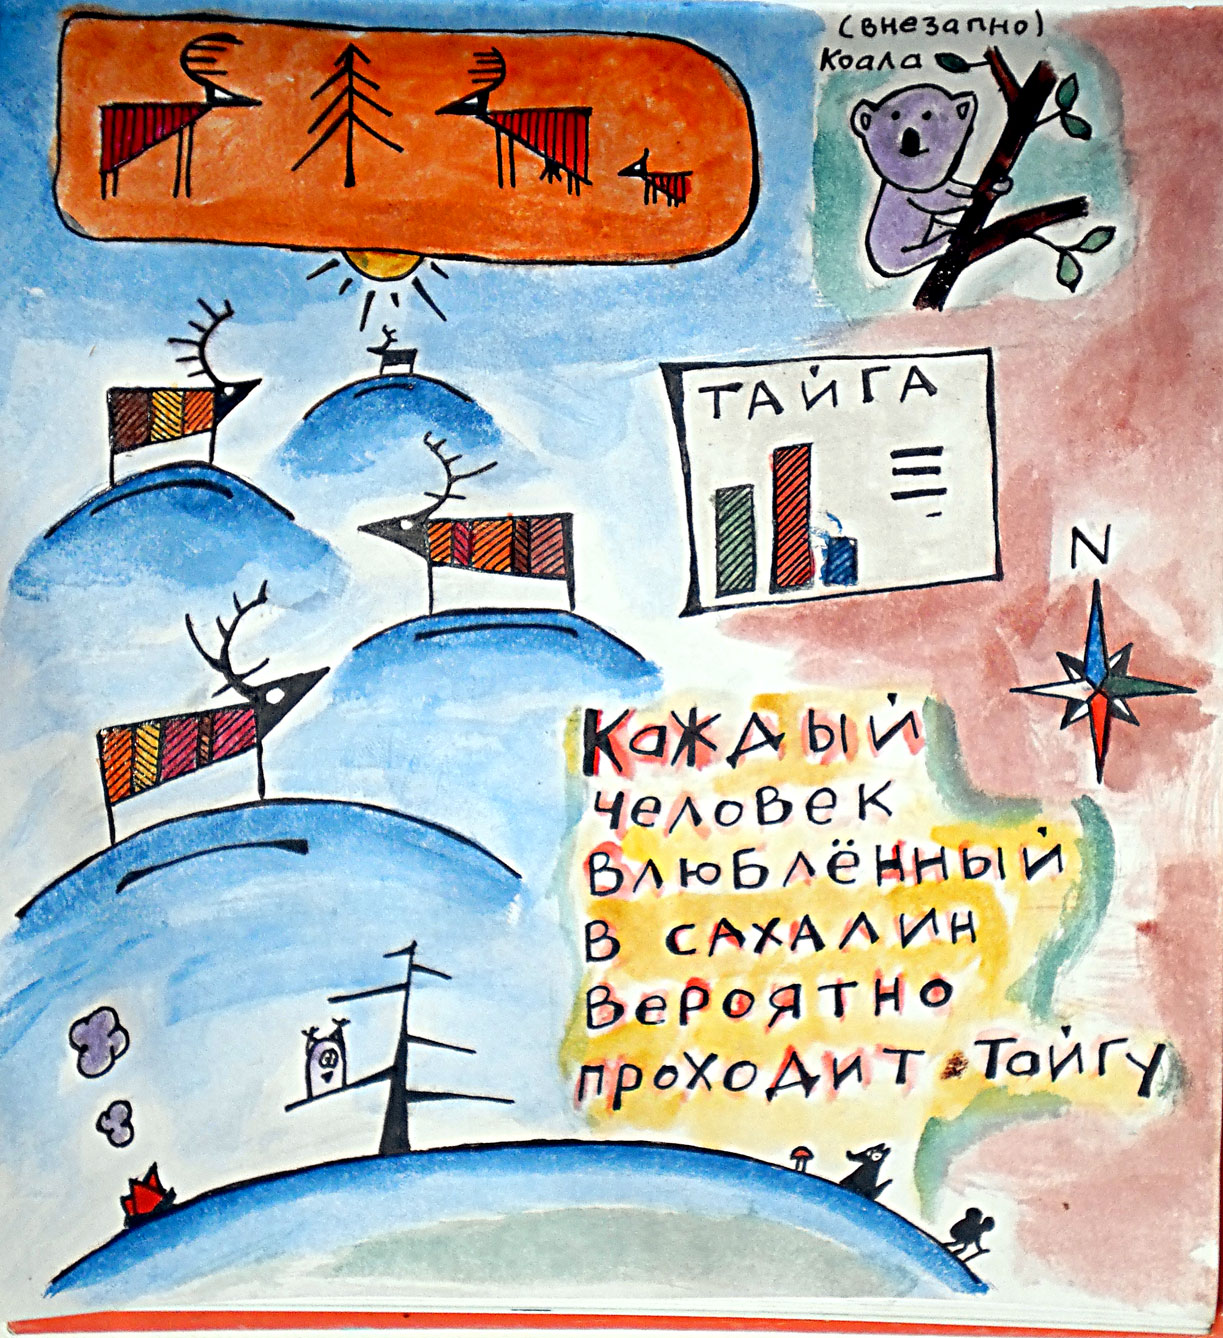 (внезапно)
коала
ТАЙГА
N
Каждый
человек
влюблённый
в сахалин
вероятно
проходит Тайгу